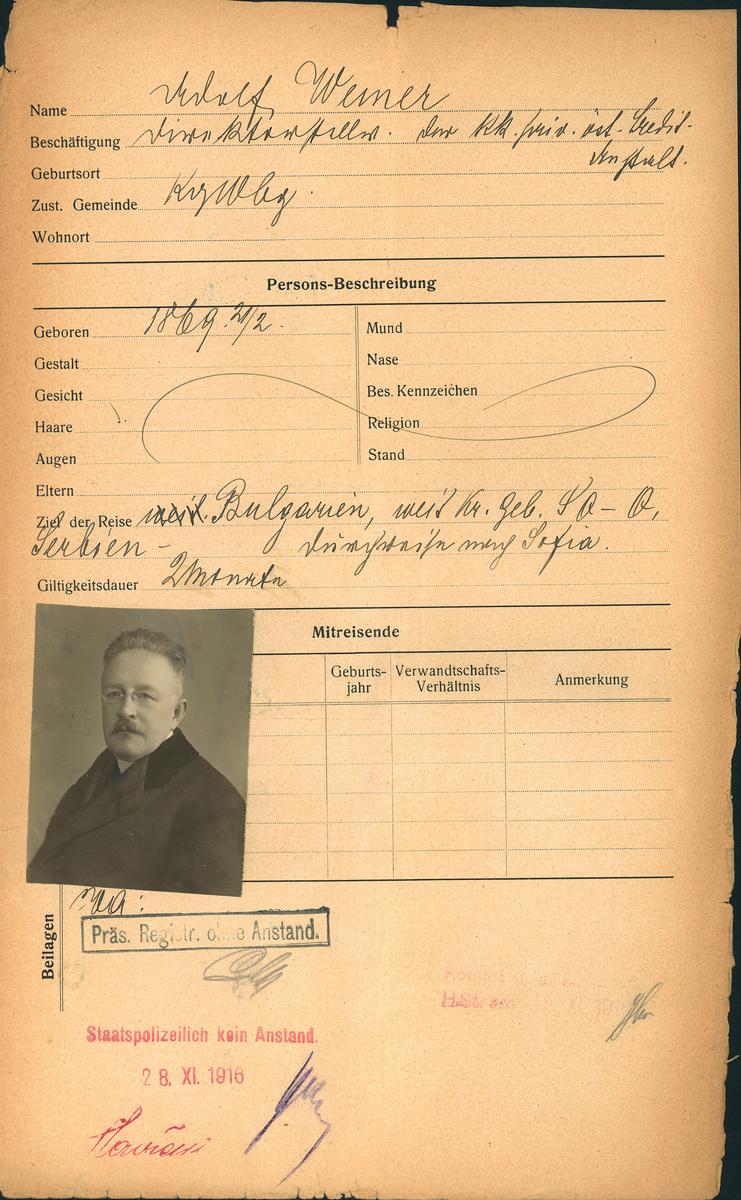 Name Adolf Weiner
Beschäftigung Direktorstellv. der kk. priv. öst. Credit-
Anstalt.
Geburtsort
Zust. Gemeinde
Wohnort
Persons-Beschreibung
Geboren 1869 2/2.
Mund
Gestalt
Nase
Gesicht
Bes. Kennzeichen
Haare
Religion
Augen
Stand
Eltern
Ziel der Reise Bulgarien, weit. Kr. geb. SO-O,
Serbien - Durchreise nach Sofia.
Giltigkeitsdauer 2 Monate
Mitreisende
Geburts-
jahr
Verwandtschafts-
Verhältnis
Anmerkung
Beilagen
Präs. Registr. ohne Anstand.
Staatspolizeilich kein Anstand.
28. XI. 1916